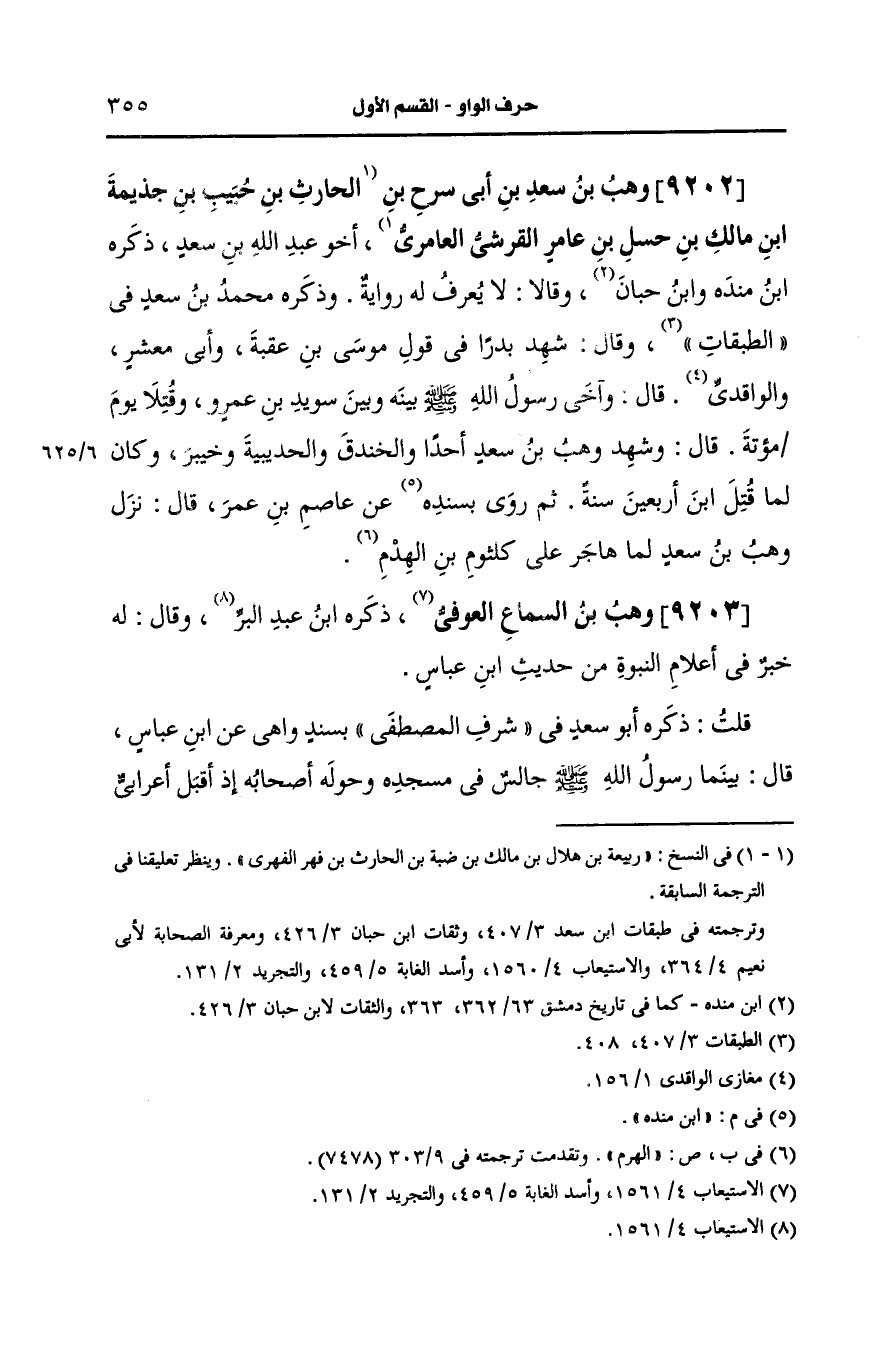 حرف الواو - القسم الأول ٣٥٥
[٩٢٠٢] وهبُ بنُ سعدِ بنِ أبى سرحِ بنِ (١الحارثِ بنِ حُبَيبِ بنِ جذيمةَ
ابنِ مالكِ بنِ حسلِ بنِ عامرٍ القرشىُّ العامرىُّ١) ، أخو عبدِ اللهِ بنِ سعدٍ ، ذكَره
ابنُ مندَه وابنُ حبانَ(٢) ، وقالا : لا يُعرفُ له روايةٌ . وذكَره محمدُ بنُ سعدٍ فى
« الطبقاتِ »(٣) ، وقال : شهِد بدرًا فى قولِ موسَى بنِ عقبةَ ، وأبى معشرٍ ،
والواقدىِّ(٤) . قال : وآخَى رسولُ اللهِ ﷺ بينَه وبينَ سويدِ بنِ عمرٍو ، وقُتِلَا يومَ
/مؤتةَ . قال : وشهِد وهبُ بنُ سعدٍ أحدًا والخندقَ والحديبيةَ وخيبرَ ، وكان ٦٢٥/٦
لما قُتِلَ ابنَ أربعينَ سنةً . ثم روَى بسندِه(٥) عن عاصمِ بنِ عمرَ ، قال : نزَل
وهبُ بنُ سعدٍ لما هاجَر على كلثومِ بنِ الهِدْمِ(٦) .
[٩٢٠٣] وهبُ بنُ السماعِ العوفىُّ(٧) ، ذكَره ابنُ عبدِ البرِّ(٨) ، وقال : له
خبرٌ فى أعلامِ النبوةِ من حديثِ ابنِ عباسٍ .
قلتُ : ذكَره أبو سعدٍ فى « شرفِ المصطفَى » بسندٍ واهى عن ابنِ عباسٍ ،
قال : بينَما رسولُ اللهِ ﷺ جالسٌ فى مسجدِه وحولَه أصحابُه إذ أقبَل أعرابىٌّ
(١ - ١) فى النسخ : « ربيعة بن هلال بن مالك بن ضبة بن الحارث بن فهر الفهرى » . وينظر تعليقنا فى
الترجمة السابقة .
وترجمته فى طبقات ابن سعد ٣/ ٤٠٧، وثقات ابن حبان ٣/ ٤٢٦، ومعرفة الصحابة لأبى
نعيم ٤/ ٣٦٤، والاستيعاب ٤/ ١٥٦٠، وأسد الغابة ٥/ ٤٥٩، والتجريد ٢/ ١٣١.
(٢) ابن منده - كما فى تاريخ دمشق ٦٣/ ٣٦٢، ٣٦٣، والثقات لابن حبان ٣/ ٤٢٦.
(٣) الطبقات ٣/ ٤٠٧، ٤٠٨.
(٤) مغازى الواقدى ١/ ١٥٦.
(٥) فى م : « ابن منده » .
(٦) فى ب ، ص : « الهرم » . وتقدمت ترجمته فى ٩/ ٣٠٣ (٧٤٧٨).
(٧) الاستيعاب ٤/ ١٥٦١، وأسد الغابة ٥/ ٤٥٩، والتجريد ٢/ ١٣١.
(٨) الاستيعاب ٤/ ١٥٦١.